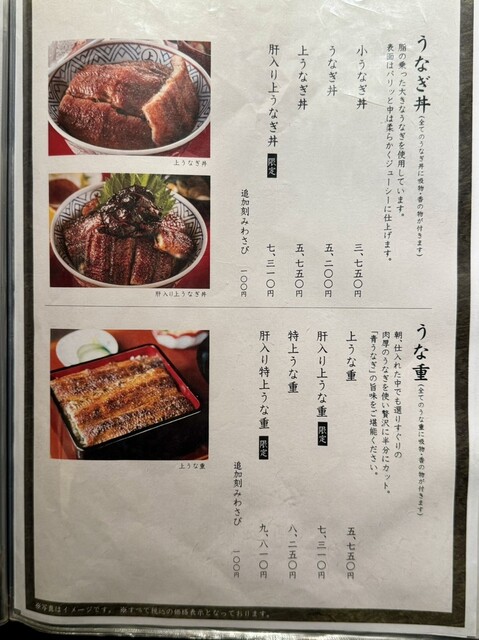 うなぎ丼(全てのうなぎ丼に吸物・香の物が付きます)
脂の乗った大きなうなぎを使用しています。
表面はパリッと中は柔らかくジューシーに仕上げます。
小うなぎ丼 三、七五〇円
うなぎ丼 五、二〇〇円
上うなぎ丼 五、七五〇円
肝入り上うなぎ丼 限定 七、三一〇円
追加刻みわさび 一〇〇円
上うなぎ丼
肝入り上うなぎ丼
うな重(全てのうな重に吸物・香の物が付きます)
朝、仕入れた中でも選りすぐりの
肉厚のうなぎを使い贅沢に半分にカット。
「青うなぎ」の旨味をご堪能ください。
上うな重 五、七五〇円
肝入り上うな重 限定 七、三一〇円
特上うな重 八、二五〇円
肝入り特上うな重 限定 九、八一〇円
追加刻みわさび 一〇〇円
上うな重
※写真はイメージです。 ※すべて税込の価格表示となっております。